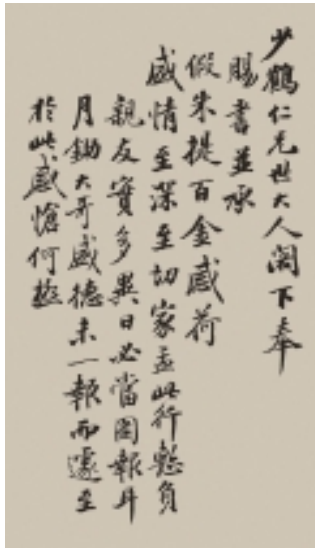 少鶴仁兄世大人閣下奉
賜書並承
假朱提百金感荷
盛情至深至切家孟此行愁負
親友實多異日必當圖報耳
月鋤大哥盛德未一報而遽至
於此感愴何極